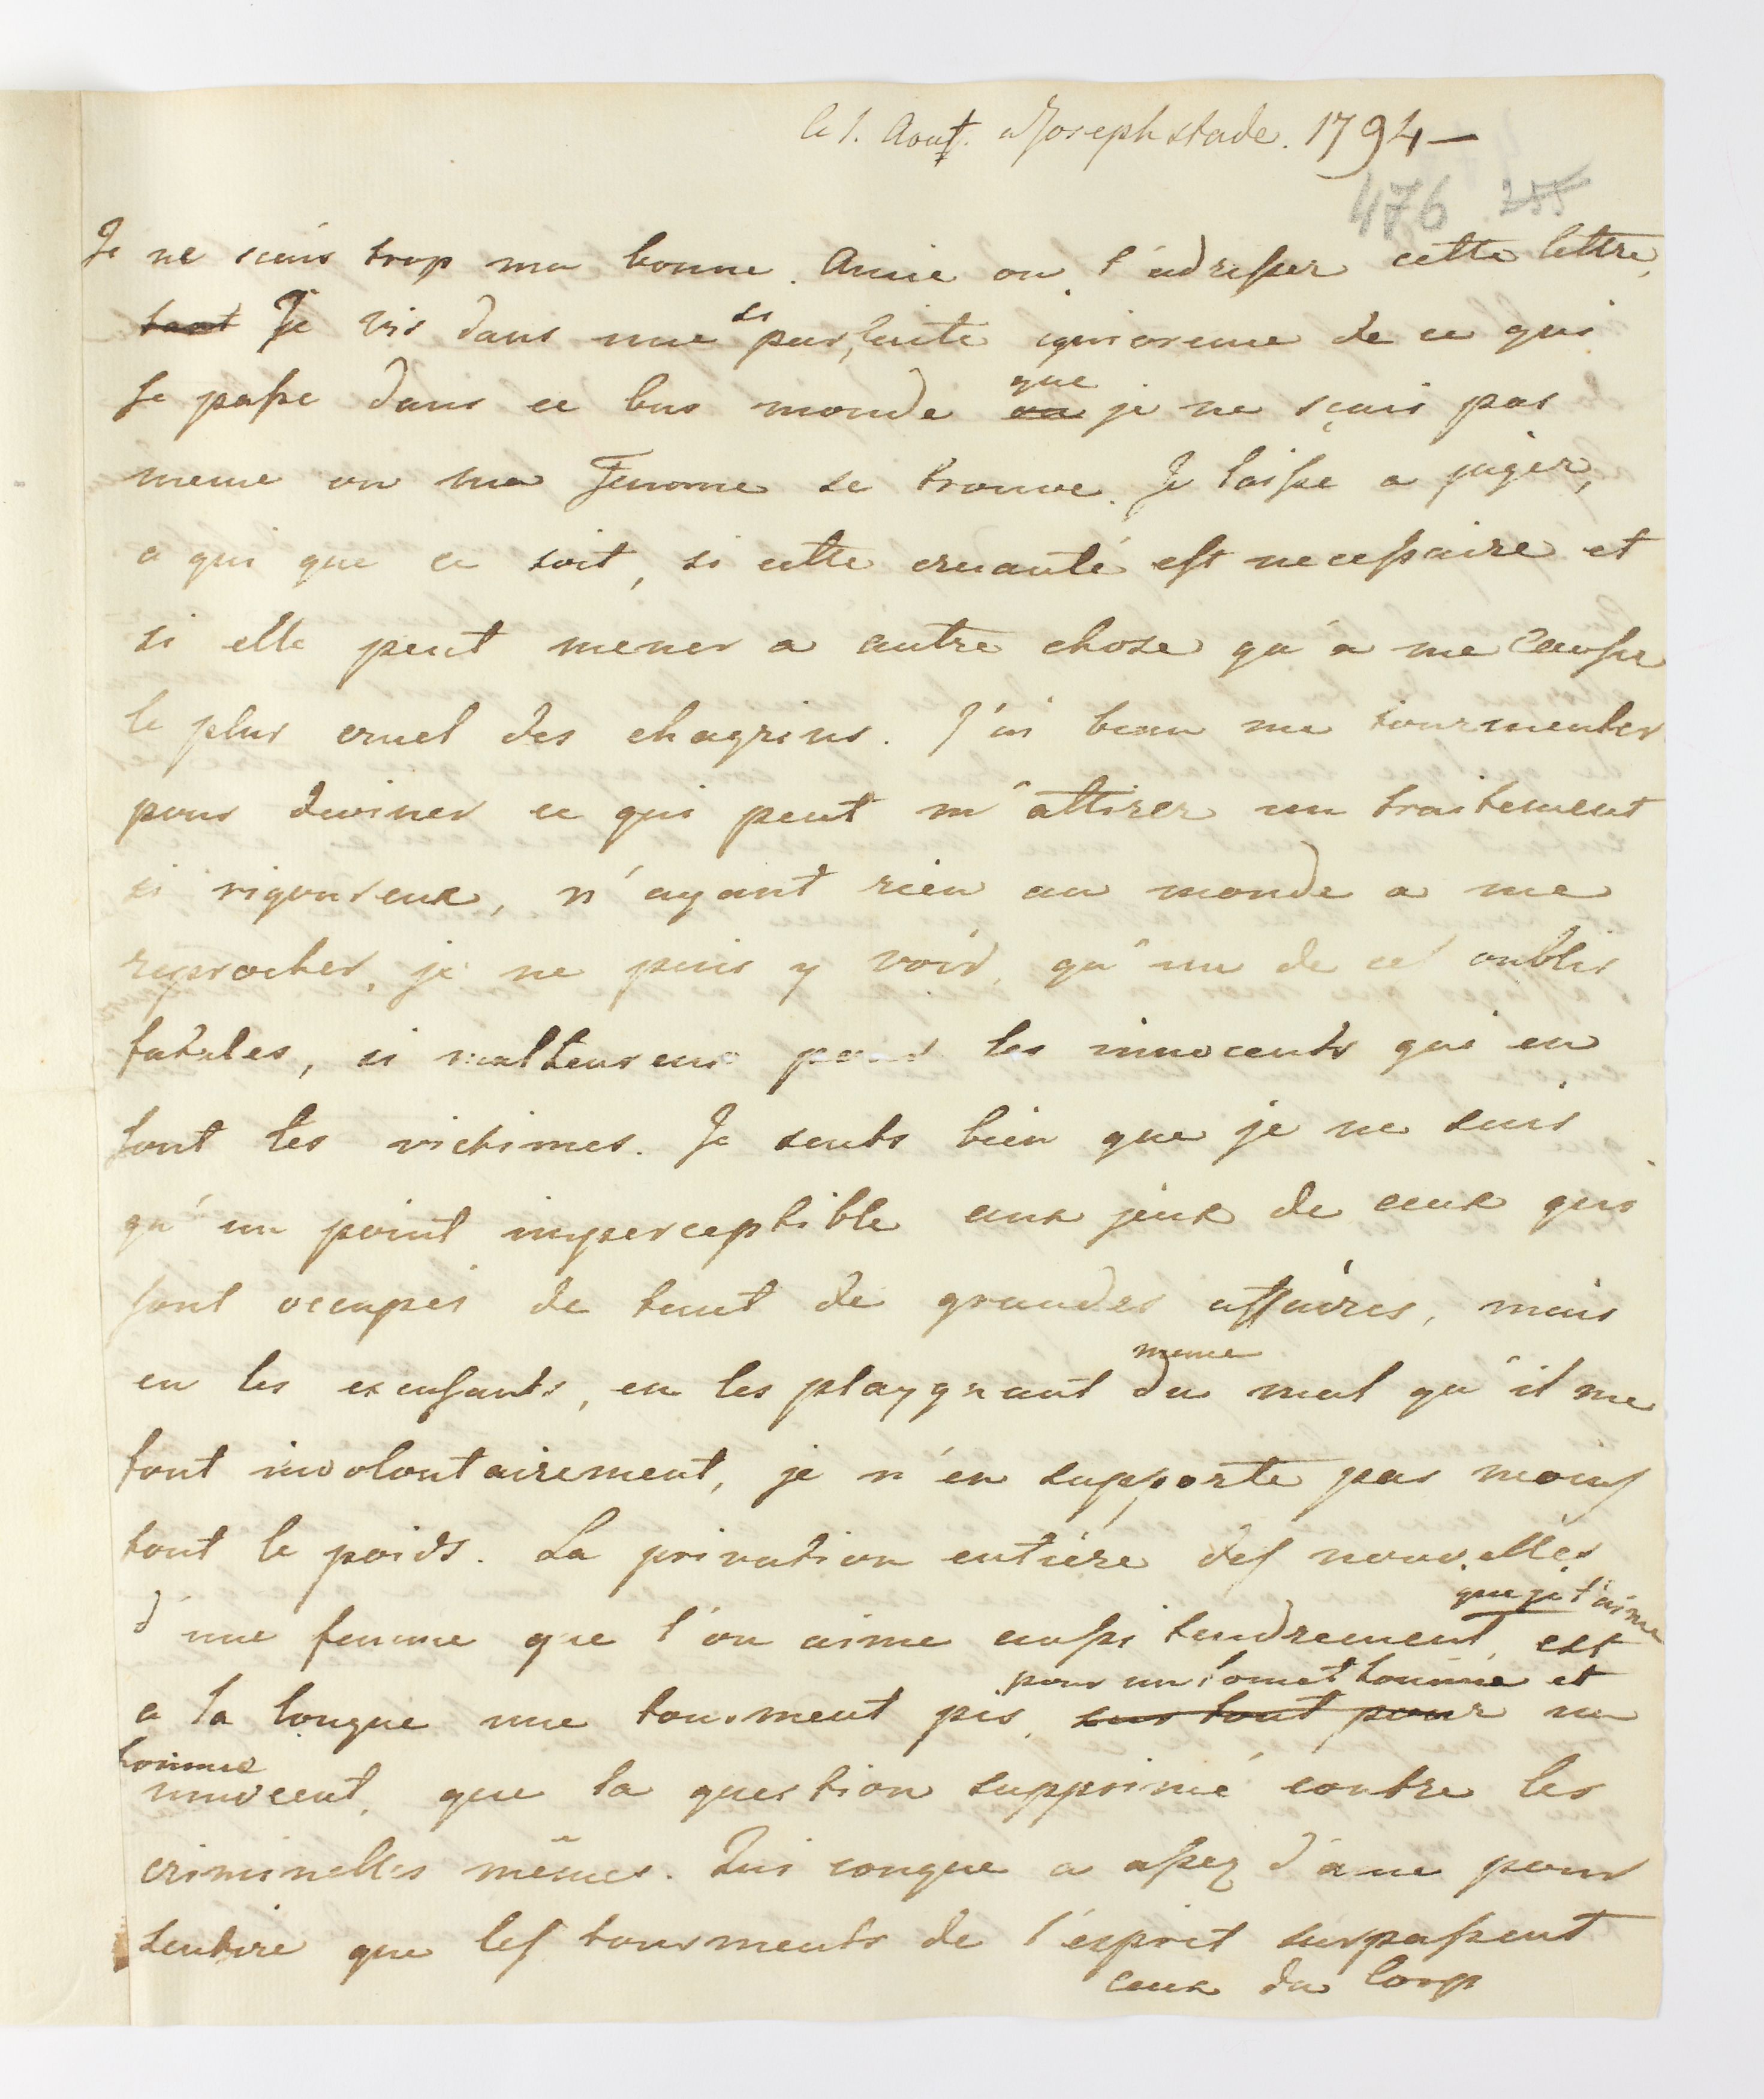 le 1. Aout. a Josephstade. 1794 —
476 255
Je ne scais trop ma bonne Amie ou t'adresser cette lettre,
tant Je vis dans une si parfaite ignorence de ce qui
se passe dans ce bas monde ou que je ne sçais pas
meme ou ma Femme se trouve. Je laisse a juger,
a qui que ce soit, si cette cruauté est necessaire et
si elle peut mener a autre chose qu'a me causer
le plus cruel des chagrins. J'ai beau me tourmenter
pour deviner ce qui peut m'attirer un traitement
si rigoureux, n'ayant rien au monde a me
reprocher, je ne puis y voir, qu'un de ces oublis
fatales, si malheureux pour les innocents qui en
sont les victimes. Je sents bien que je ne suis
qu'un point imperceptible aux jeux de ceux qui
sont occupés de tant de grandes affaires, mais
en les excusants, en les playgnant meme du mal qu'il me
font involontairement, je n'en supporte pas moins
tout le poids. La privation entiére des nouvelles
d'une femme que l'on aime aussi tendrement que je t'aime est
a la longue une tourment pis, sur tout pour pour un homet homme et un
homme innocent, que la question supprimé contre les
criminelles mêmes. Quiconque a assez d'ame pour
sentire que les tourments de l'esprit surpassent
ceux du Corp